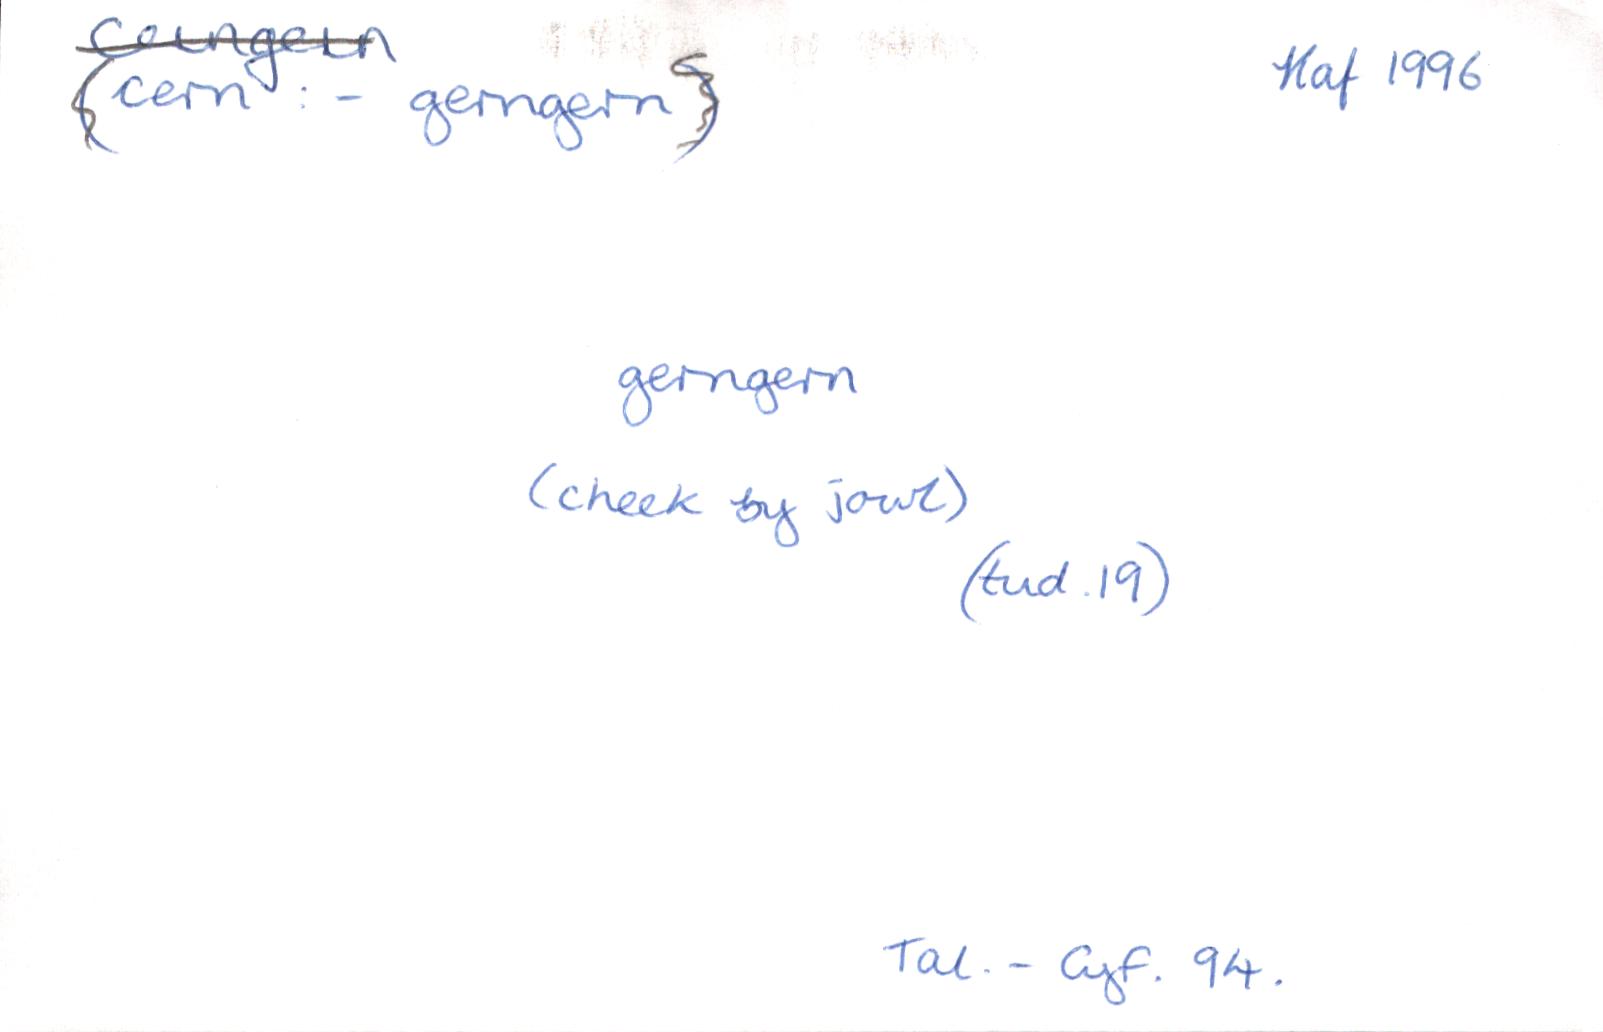 cerngern
(cern : - gerngern)
Haf 1996
gerngern
(cheek by jowl)
(tud. 19)
Tal. - Cyf. 94.